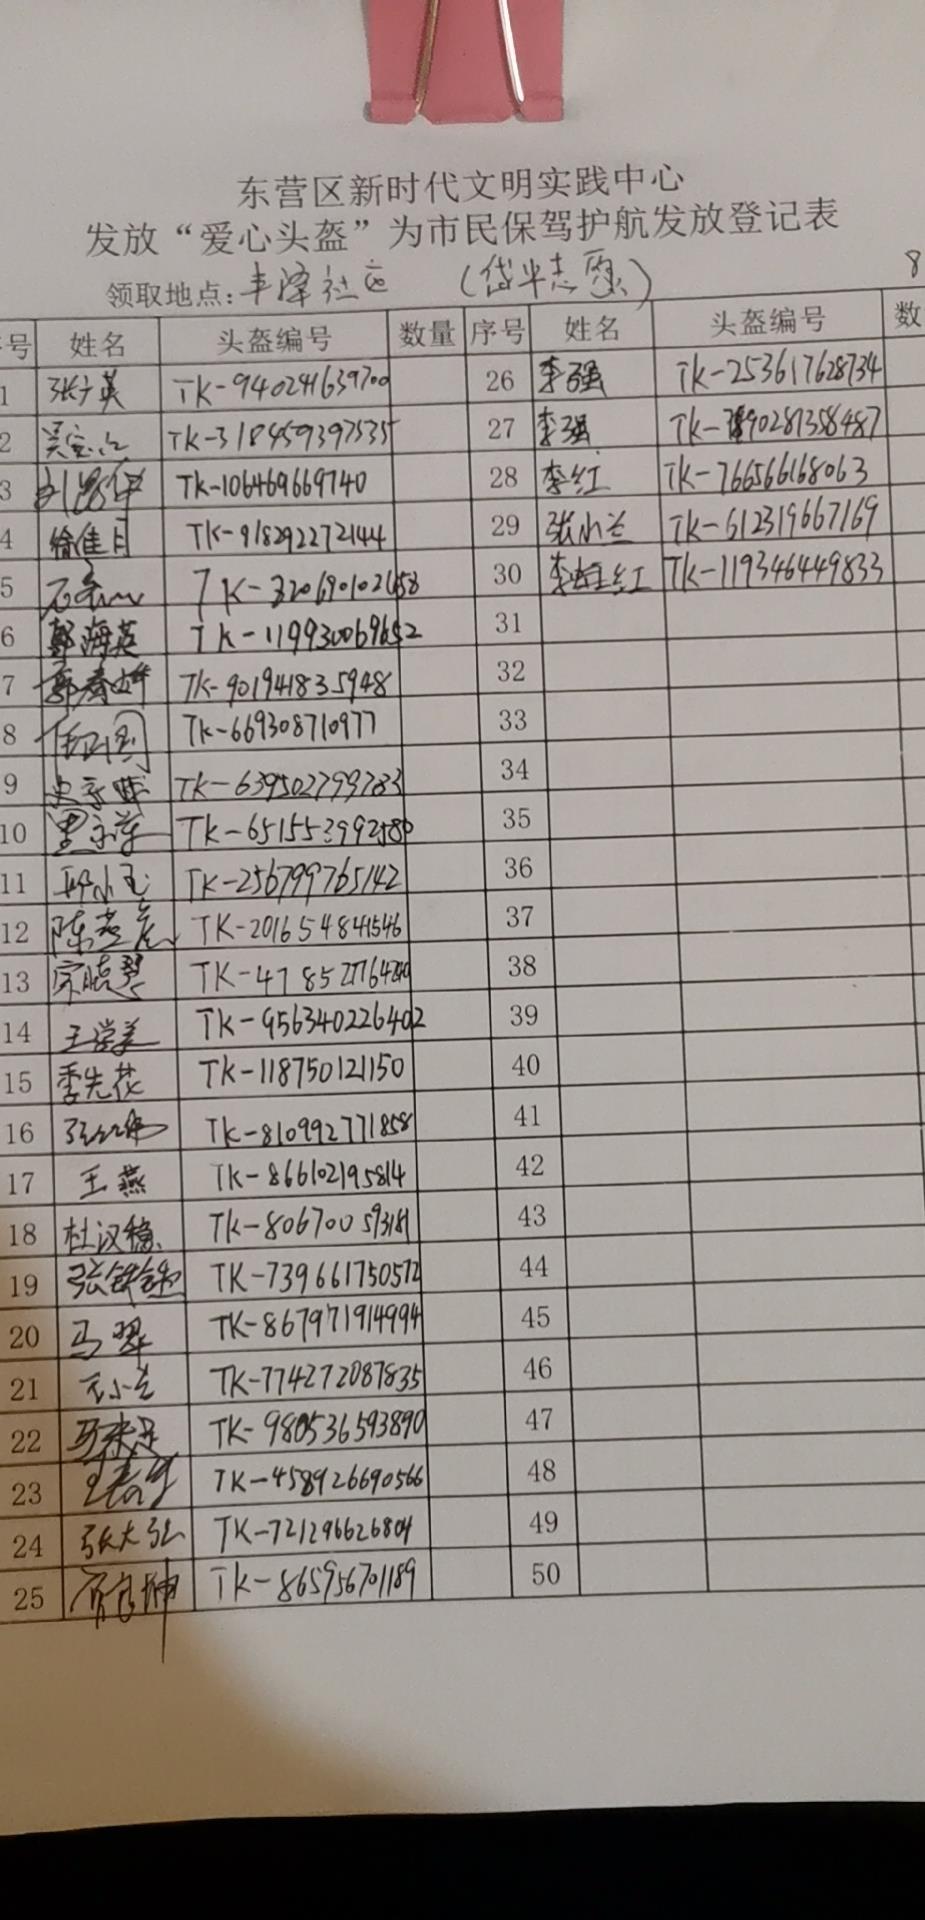 东营区新时代文明实践中心
发放“爱心头盔”为市民保驾护航发放登记表
领取地点:丰泽社区 (岱半志愿) 8
号 姓名 头盔编号 数量 序号 姓名 头盔编号 数
1 张广英 TK-940241639700 26 李强 TK-253617628734
2 TK-318459397535 27 李强
3 TK-106469669740 28 李红 TK-766566168063
4 徐佳月 TK-918292272144 29 张小兰 TK-612319667169
5 TK-320690102658 30 TK-119346449833
6 郭海英 TK-119930069652 31
7 郭春 TK-901941835948 32
8 TK-669308710977 33
9 TK-639502799783 34
10 TK-651553992580 35
11 邱小玉 TK-256799765142 36
12 陈 TK-201654841546 37
13 宋晓琴 38
14 王学美 TK-956340226402 39
15 季先花 TK-118750121150 40
16 TK-810992771858 41
17 王燕 TK-866102195814 42
18 杜汉稳 TK-806700593181 43
19 张 TK-739661750572 44
20 马翠 TK-867971914994 45
21 小兰 TK-774272087835 46
22 TK-980536593890 47
23 王春 TK-458926690566 48
24 张大弘 TK-721296626804 49
25 TK-865956701189 50